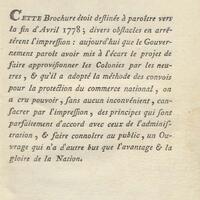 CETTE Brochure étoit destinée à paroître vers
la fin d'Avril 1778; divers obstacles en arrê-
tèrent l'impression: aujourd'hui que le Gouver-
nement paroît avoir mis à l'écart le projet de
faire approvisionner les Colonies par les neu-
tres, & qu'il a adopté la méthode des convois
pour la protection du commerce national, on
a cru pouvoir, sans aucun inconvénient, con-
sacrer par l'impression, des principes qui sont
parfaitement d'accord avec ceux de l'adminis-
tration, & faire connoître au public, un Ou-
vrage qui n'a d'autre but que l'avantage & la
gloire de la Nation.